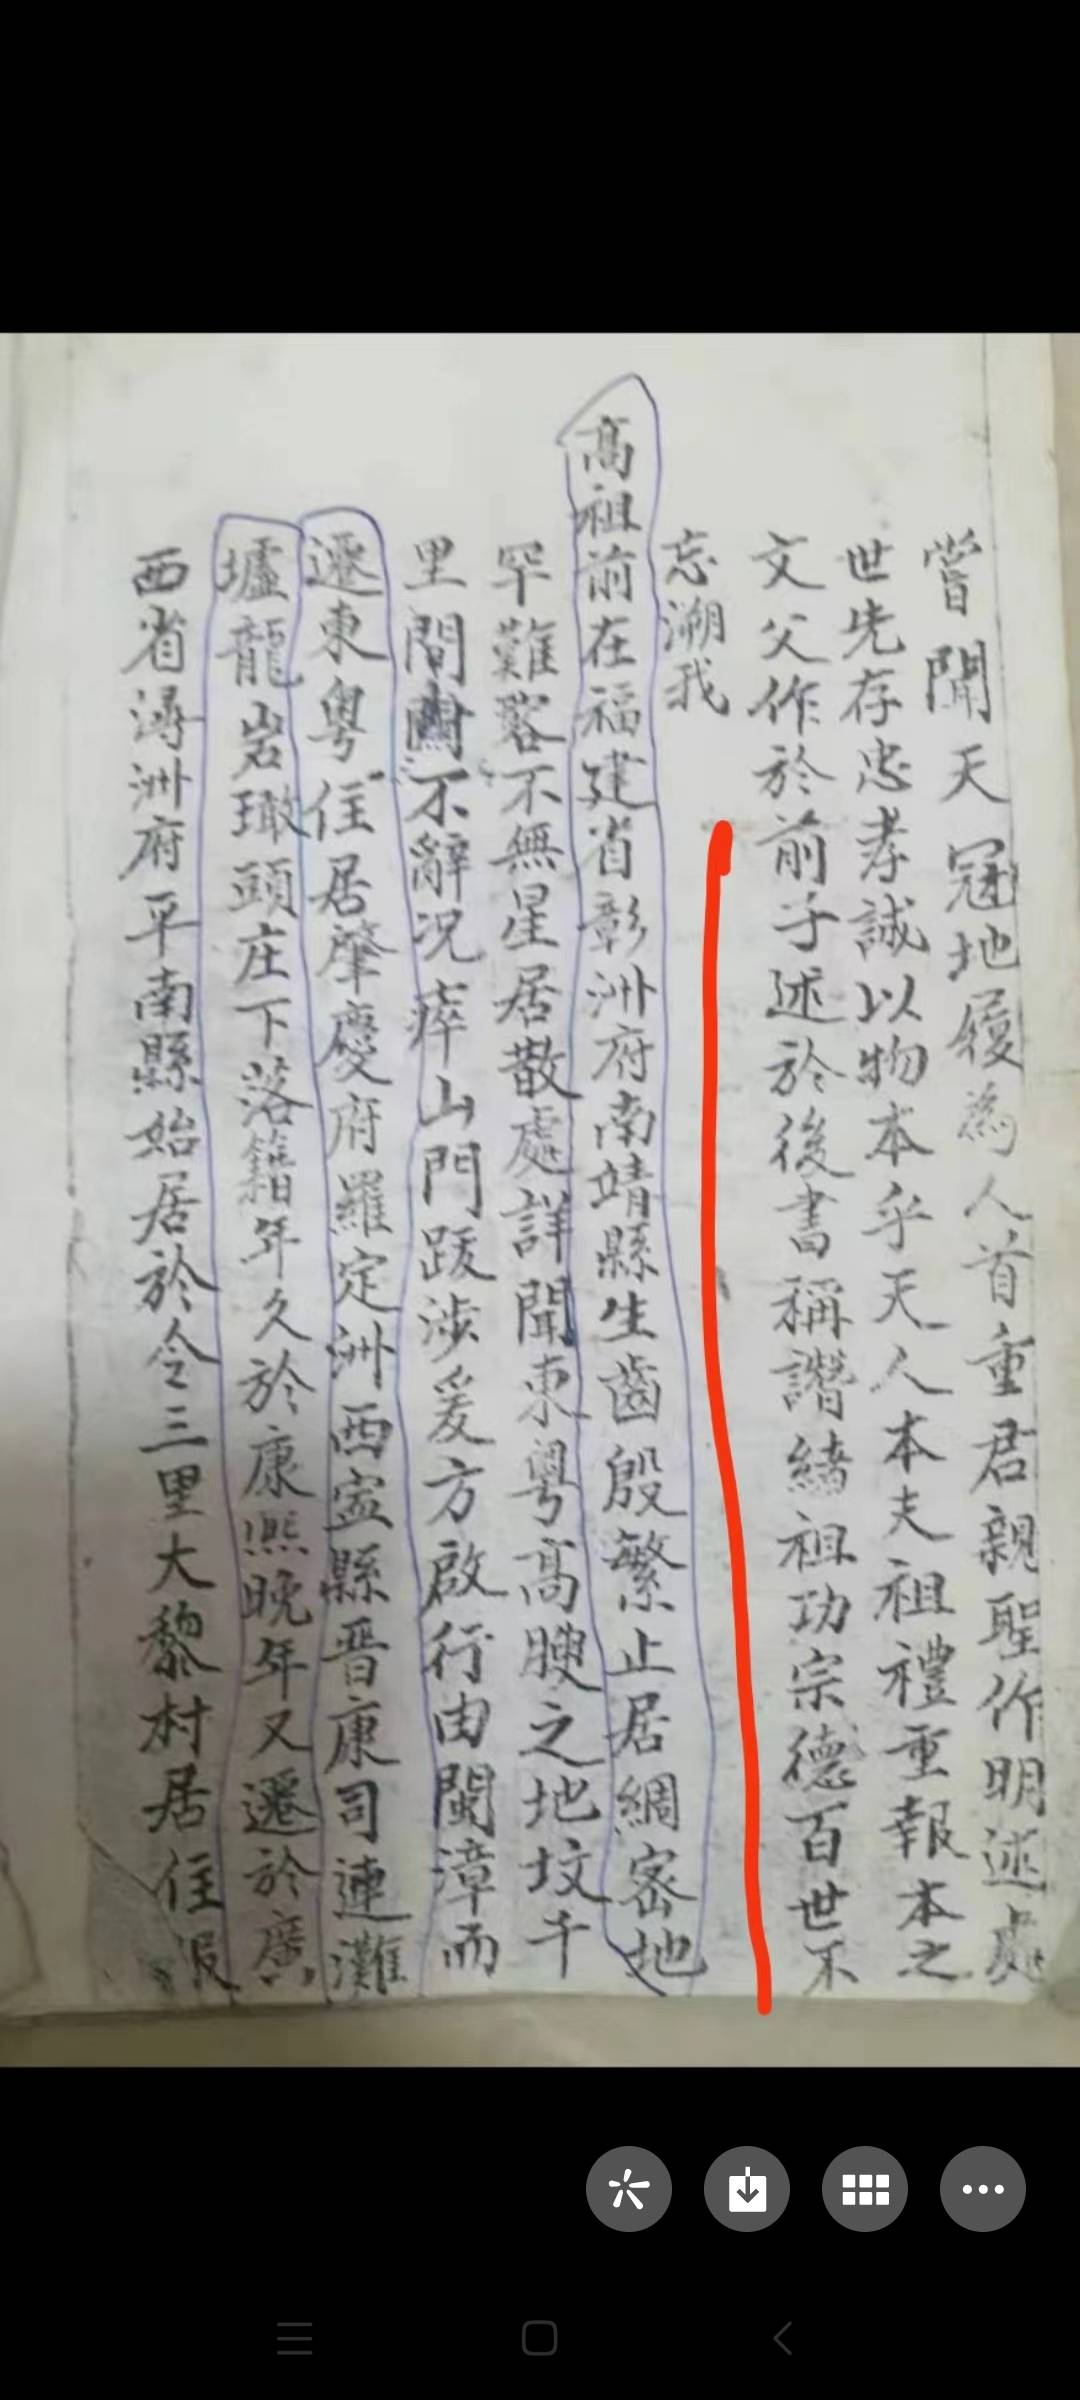 嘗聞天冠地履為人首重君親聖作明述處
世先存忠孝誠以物本乎天人本夫祖禮重報本之
文父作於前子述於後書稱譖緒祖功宗德百世不
忘溯我
高祖前在福建省彰洲府南靖縣生齒殷繁止居綢密地
罕難容不無星居散處詳聞東粤高腴之地坟千
里間不辭況瘁山門跋涉爰方啟行由閩漳而
遷東粤住居肇慶府羅定洲西寍縣晋康司連灘
墟龍岩瑯頭庄下落籍年久於康熙晚年又遷於廣
西省潯洲府平南縣始居於令三里大黎村居住